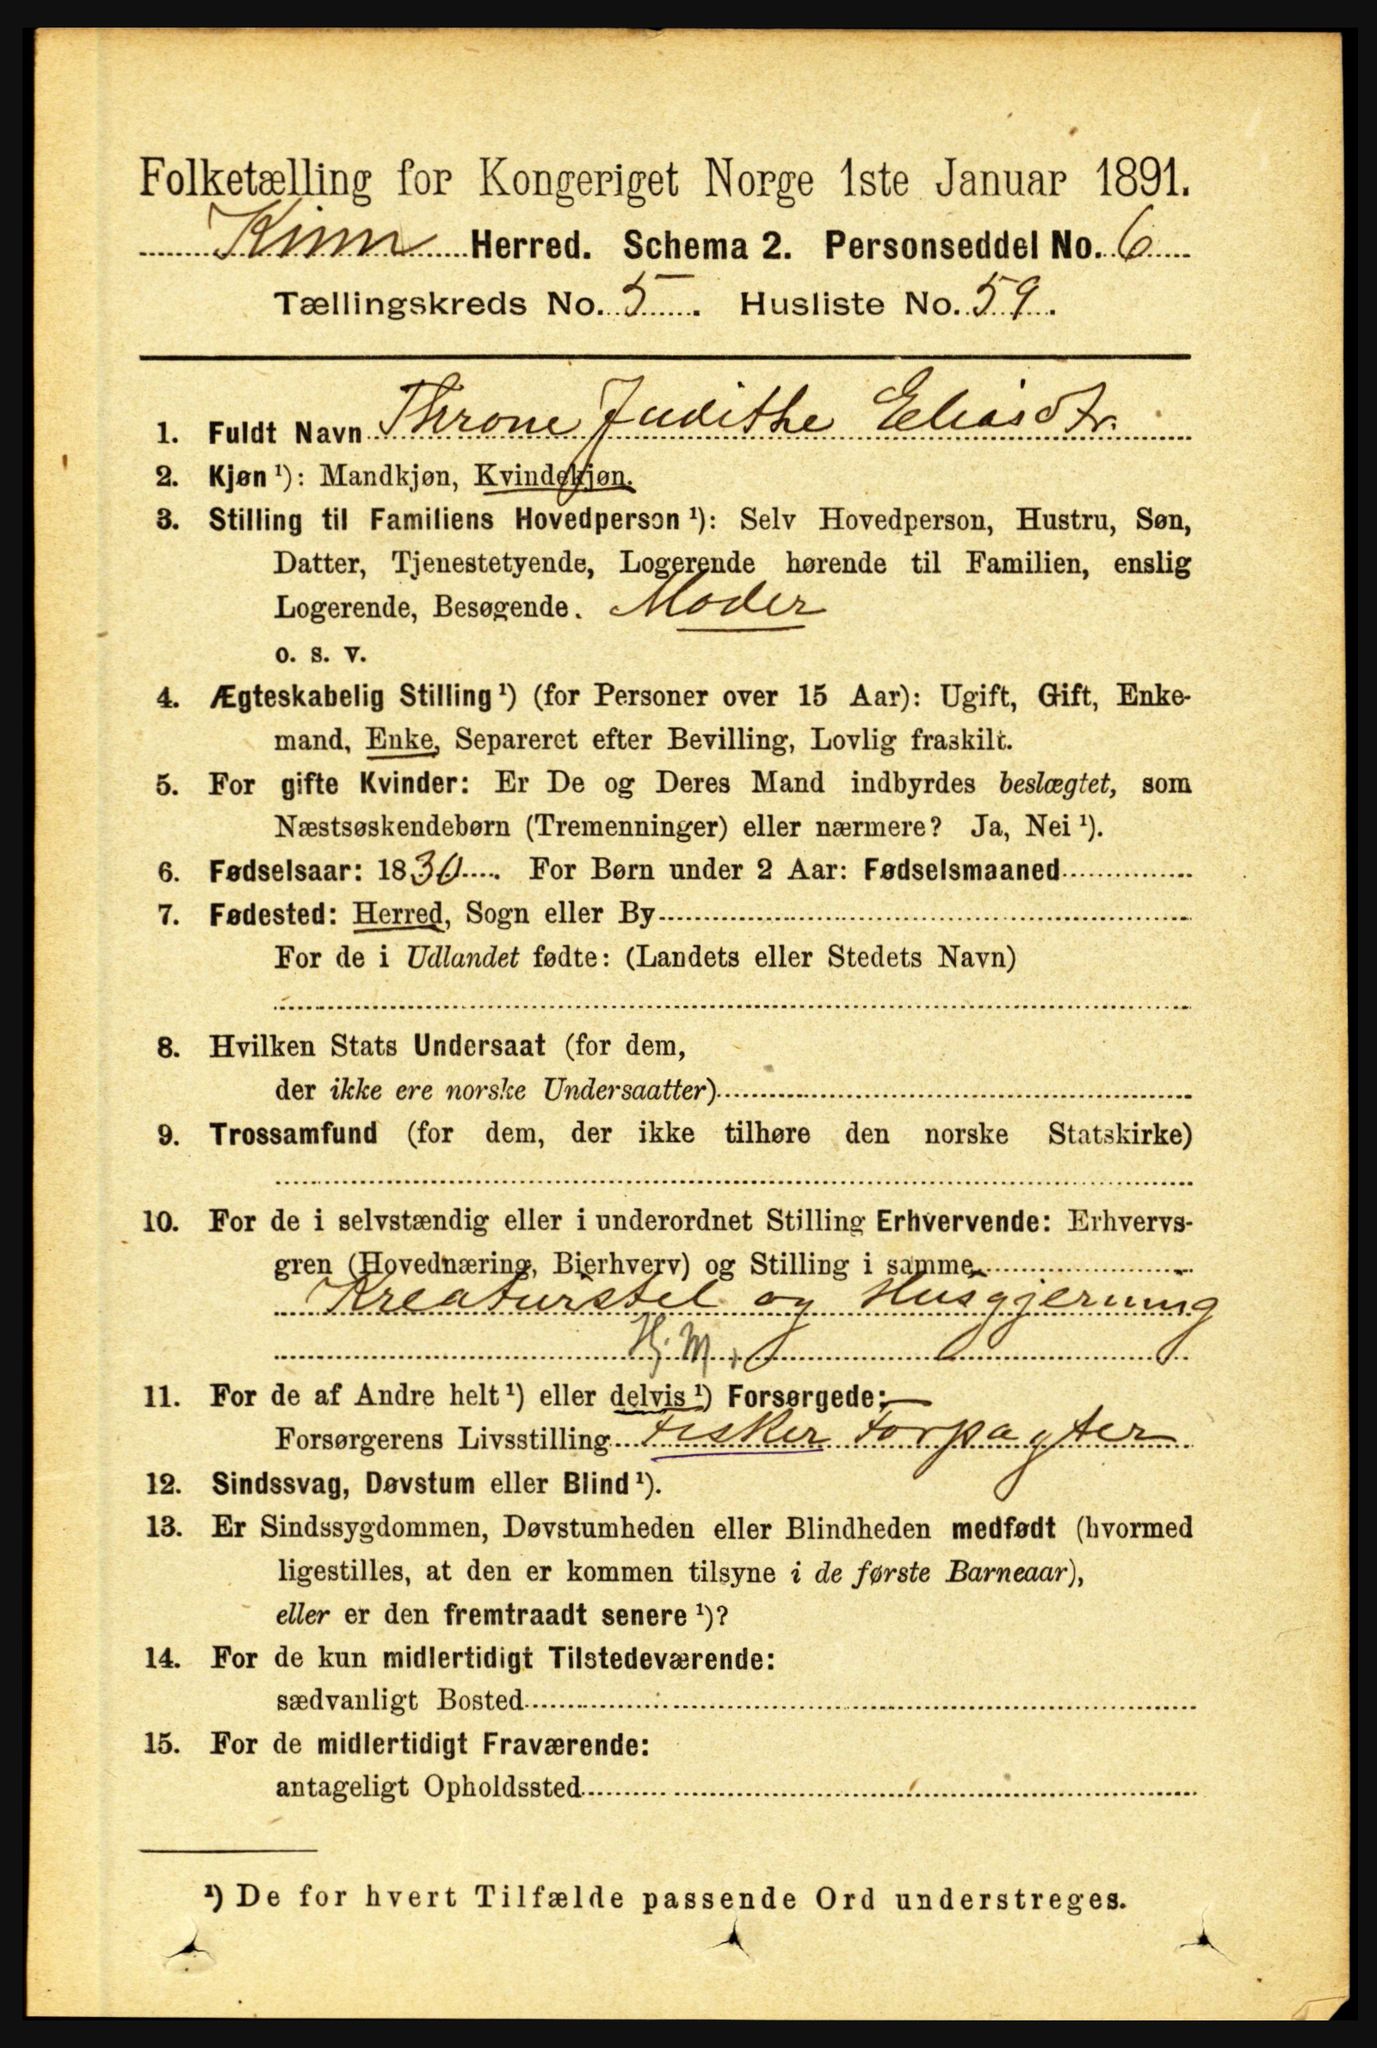 Folketælling for Kongeriget Norge 1ste Januar 1891.
Kinn Herred. Schema 2. Personseddel No. 6
Tællingskreds No. 5. Husliste No. 59.
1. Fuldt Navn Throne Judithe Eliasdtr.
2. Kjøn ¹): Mandkjøn, Kvindekjøn.
3. Stilling til Familiens Hovedperson ¹): Selv Hovedperson, Hustru, Søn,
Datter, Tjenestetyende, Logerende hørende til Familien, enslig
Logerende, Besøgende. Moder
o. s. v.
4. Ægteskabelig Stilling ¹) (for Personer over 15 Aar): Ugift, Gift, Enke-
mand, Enke, Separeret efter Bevilling, Lovlig fraskilt.
5. For gifte Kvinder: Er De og Deres Mand indbyrdes beslægtet, som
Næstsøskendebørn (Tremenninger) eller nærmere? Ja, Nei ¹).
6. Fødselsaar: 1830. For Børn under 2 Aar: Fødselsmaaned
7. Fødested: Herred, Sogn eller By
For de i Udlandet fødte: (Landets eller Stedets Navn)
8. Hvilken Stats Undersaat (for dem,
der ikke ere norske Undersaatter)
9. Trossamfund (for dem, der ikke tilhøre den norske Statskirke)
10. For de i selvstændig eller i underordnet Stilling Erhvervende: Erhvervs-
gren (Hovednæring, Bierhverv) og Stilling i samme
Kreaturstel og Husgjerning
Hj. M.
11. For de af Andre helt ¹) eller delvis ¹) Forsørgede:
Forsørgerens Livsstilling Fisker Forpagter
12. Sindssvag, Døvstum eller Blind ¹).
13. Er Sindssygdommen, Døvstumheden eller Blindheden medfødt (hvormed
ligestilles, at den er kommen tilsyne i de første Barneaar),
eller er den fremtraadt senere ¹)?
14. For de kun midlertidigt Tilstedeværende:
sædvanligt Bosted
15. For de midlertidigt Fraværende:
antageligt Opholdssted
¹) De for hvert Tilfælde passende Ord understreges.